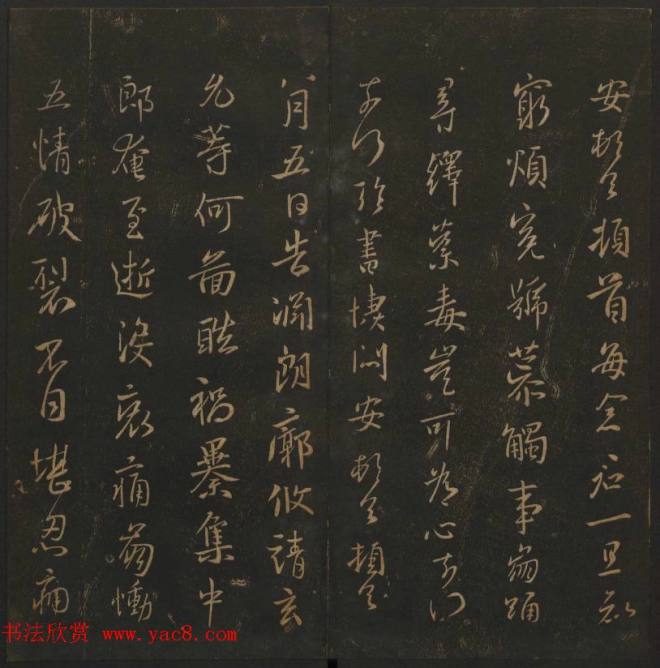 安頓首頓首每念君一旦知
窮煩冤號慕觸事崩踊
尋繹荼毒豈可為心奈何
奈何臨書悽悶安頓首頓首
八月五日告淵朗廓攸靖玄
允等何圖酷禍暴集中
郎奄至逝沒哀痛崩慟
五情破裂不自堪忍痛
书法欣赏 www.yac8.com